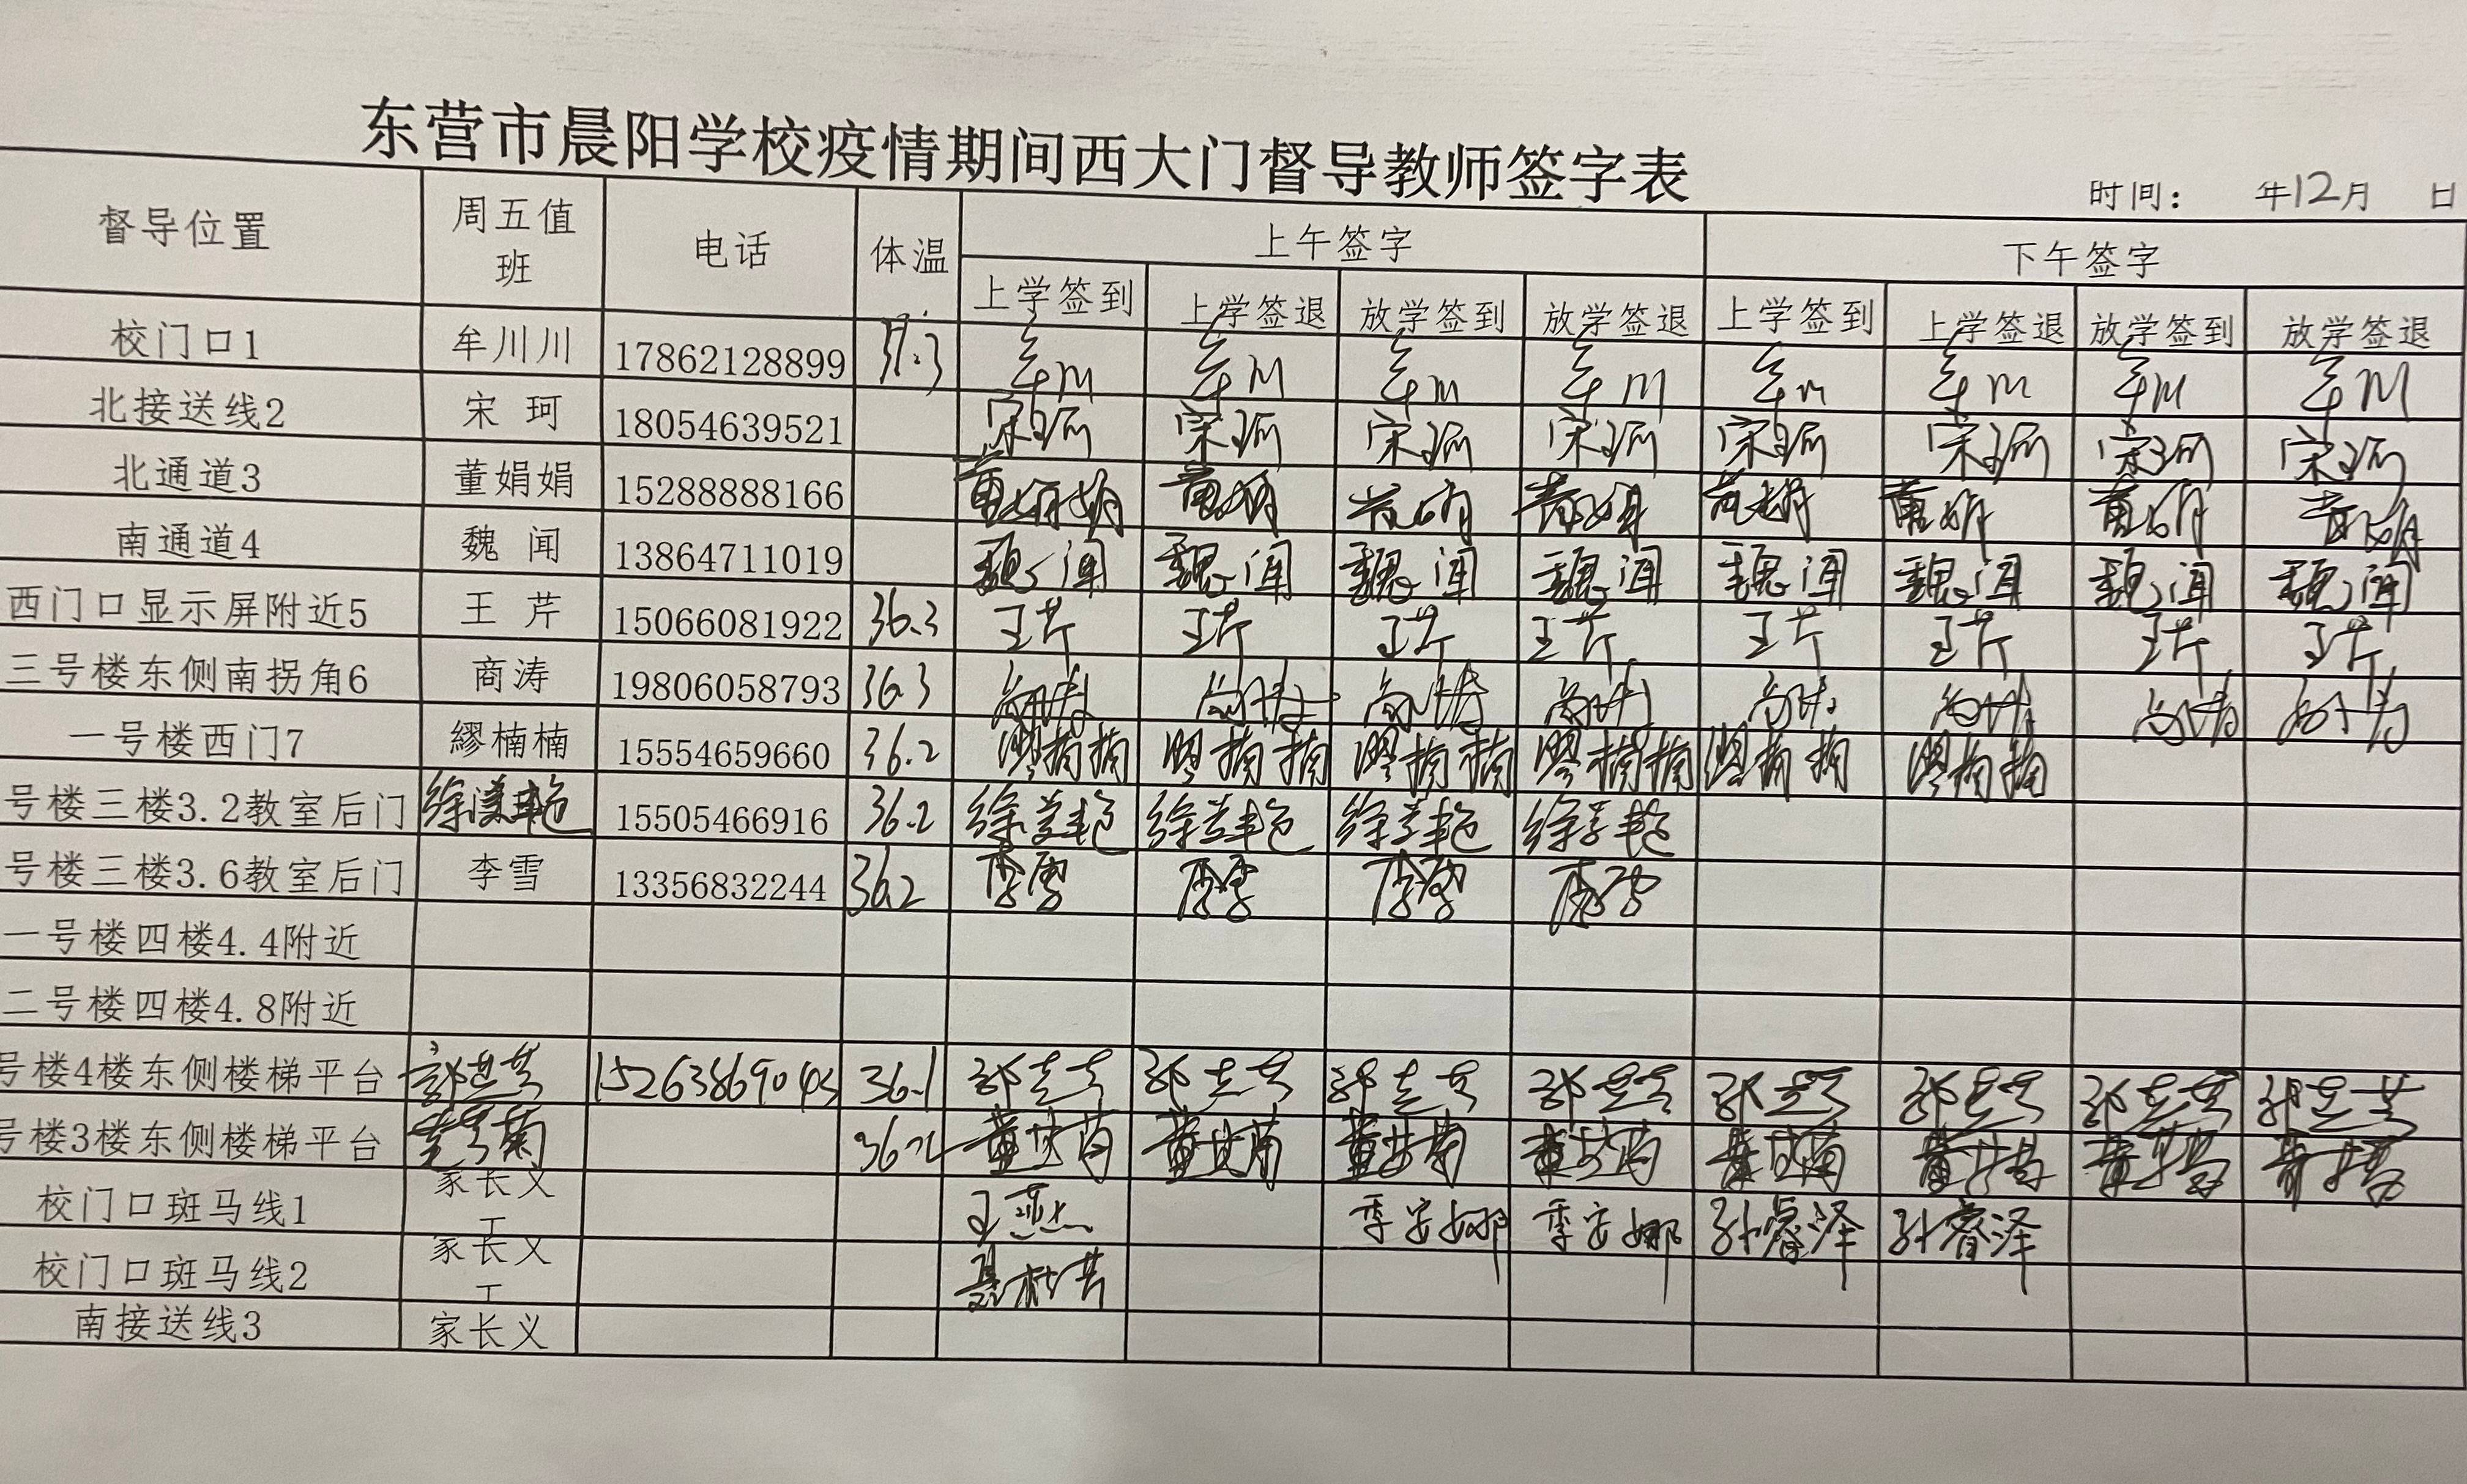 东营市晨阳学校疫情期间西大门督导教师签字表
时间： 年12月 日
督导位置 周五值班 电话 体温 上午签字 下午签字
上学签到 上学签退 放学签到 放学签退 上学签到 上学签退 放学签到 放学签退
校门口1 牟川川 17862128899 37.3 牟川 牟川 牟川 牟川 牟川 牟川 牟川 牟川
北接送线2 宋 珂 18054639521 宋珂 宋珂 宋珂 宋珂 宋珂 宋珂 宋珂 宋珂
北通道3 董娟娟 15288888166 董娟娟 董娟 董娟 董娟 董娟 董娟 董娟 董娟
南通道4 魏 闻 13864711019 魏闻 魏闻 魏闻 魏闻 魏闻 魏闻 魏闻 魏闻
西门口显示屏附近5 王 芹 15066081922 36.3 王芹 王芹 王芹 王芹 王芹 王芹 王芹 王芹
三号楼东侧南拐角6 商涛 19806058793 36.3 商涛 商涛 商涛 商涛 商涛 商涛 商涛 商涛
一号楼西门7 繆楠楠 15554659660 36.2 缪楠楠 缪楠楠 缪楠楠 缪楠楠 缪楠楠 缪楠楠
号楼三楼3.2教室后门 徐美艳 15505466916 36.2 徐美艳 徐美艳 徐美艳 徐美艳
号楼三楼3.6教室后门 李雪 13356832244 36.2 李雪 李雪 李雪 李雪
一号楼四楼4.4附近
二号楼四楼4.8附近
号楼4楼东侧楼梯平台 15263869043 36.1
号楼3楼东侧楼梯平台 36.2
校门口斑马线1 家长义工 王燕 季安娜 季安娜 孙睿泽 孙睿泽
校门口斑马线2 家长义工
南接送线3 家长义